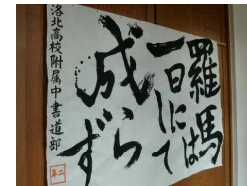 羅馬は
一日にして
成らず
洛北高校附属中 書道部